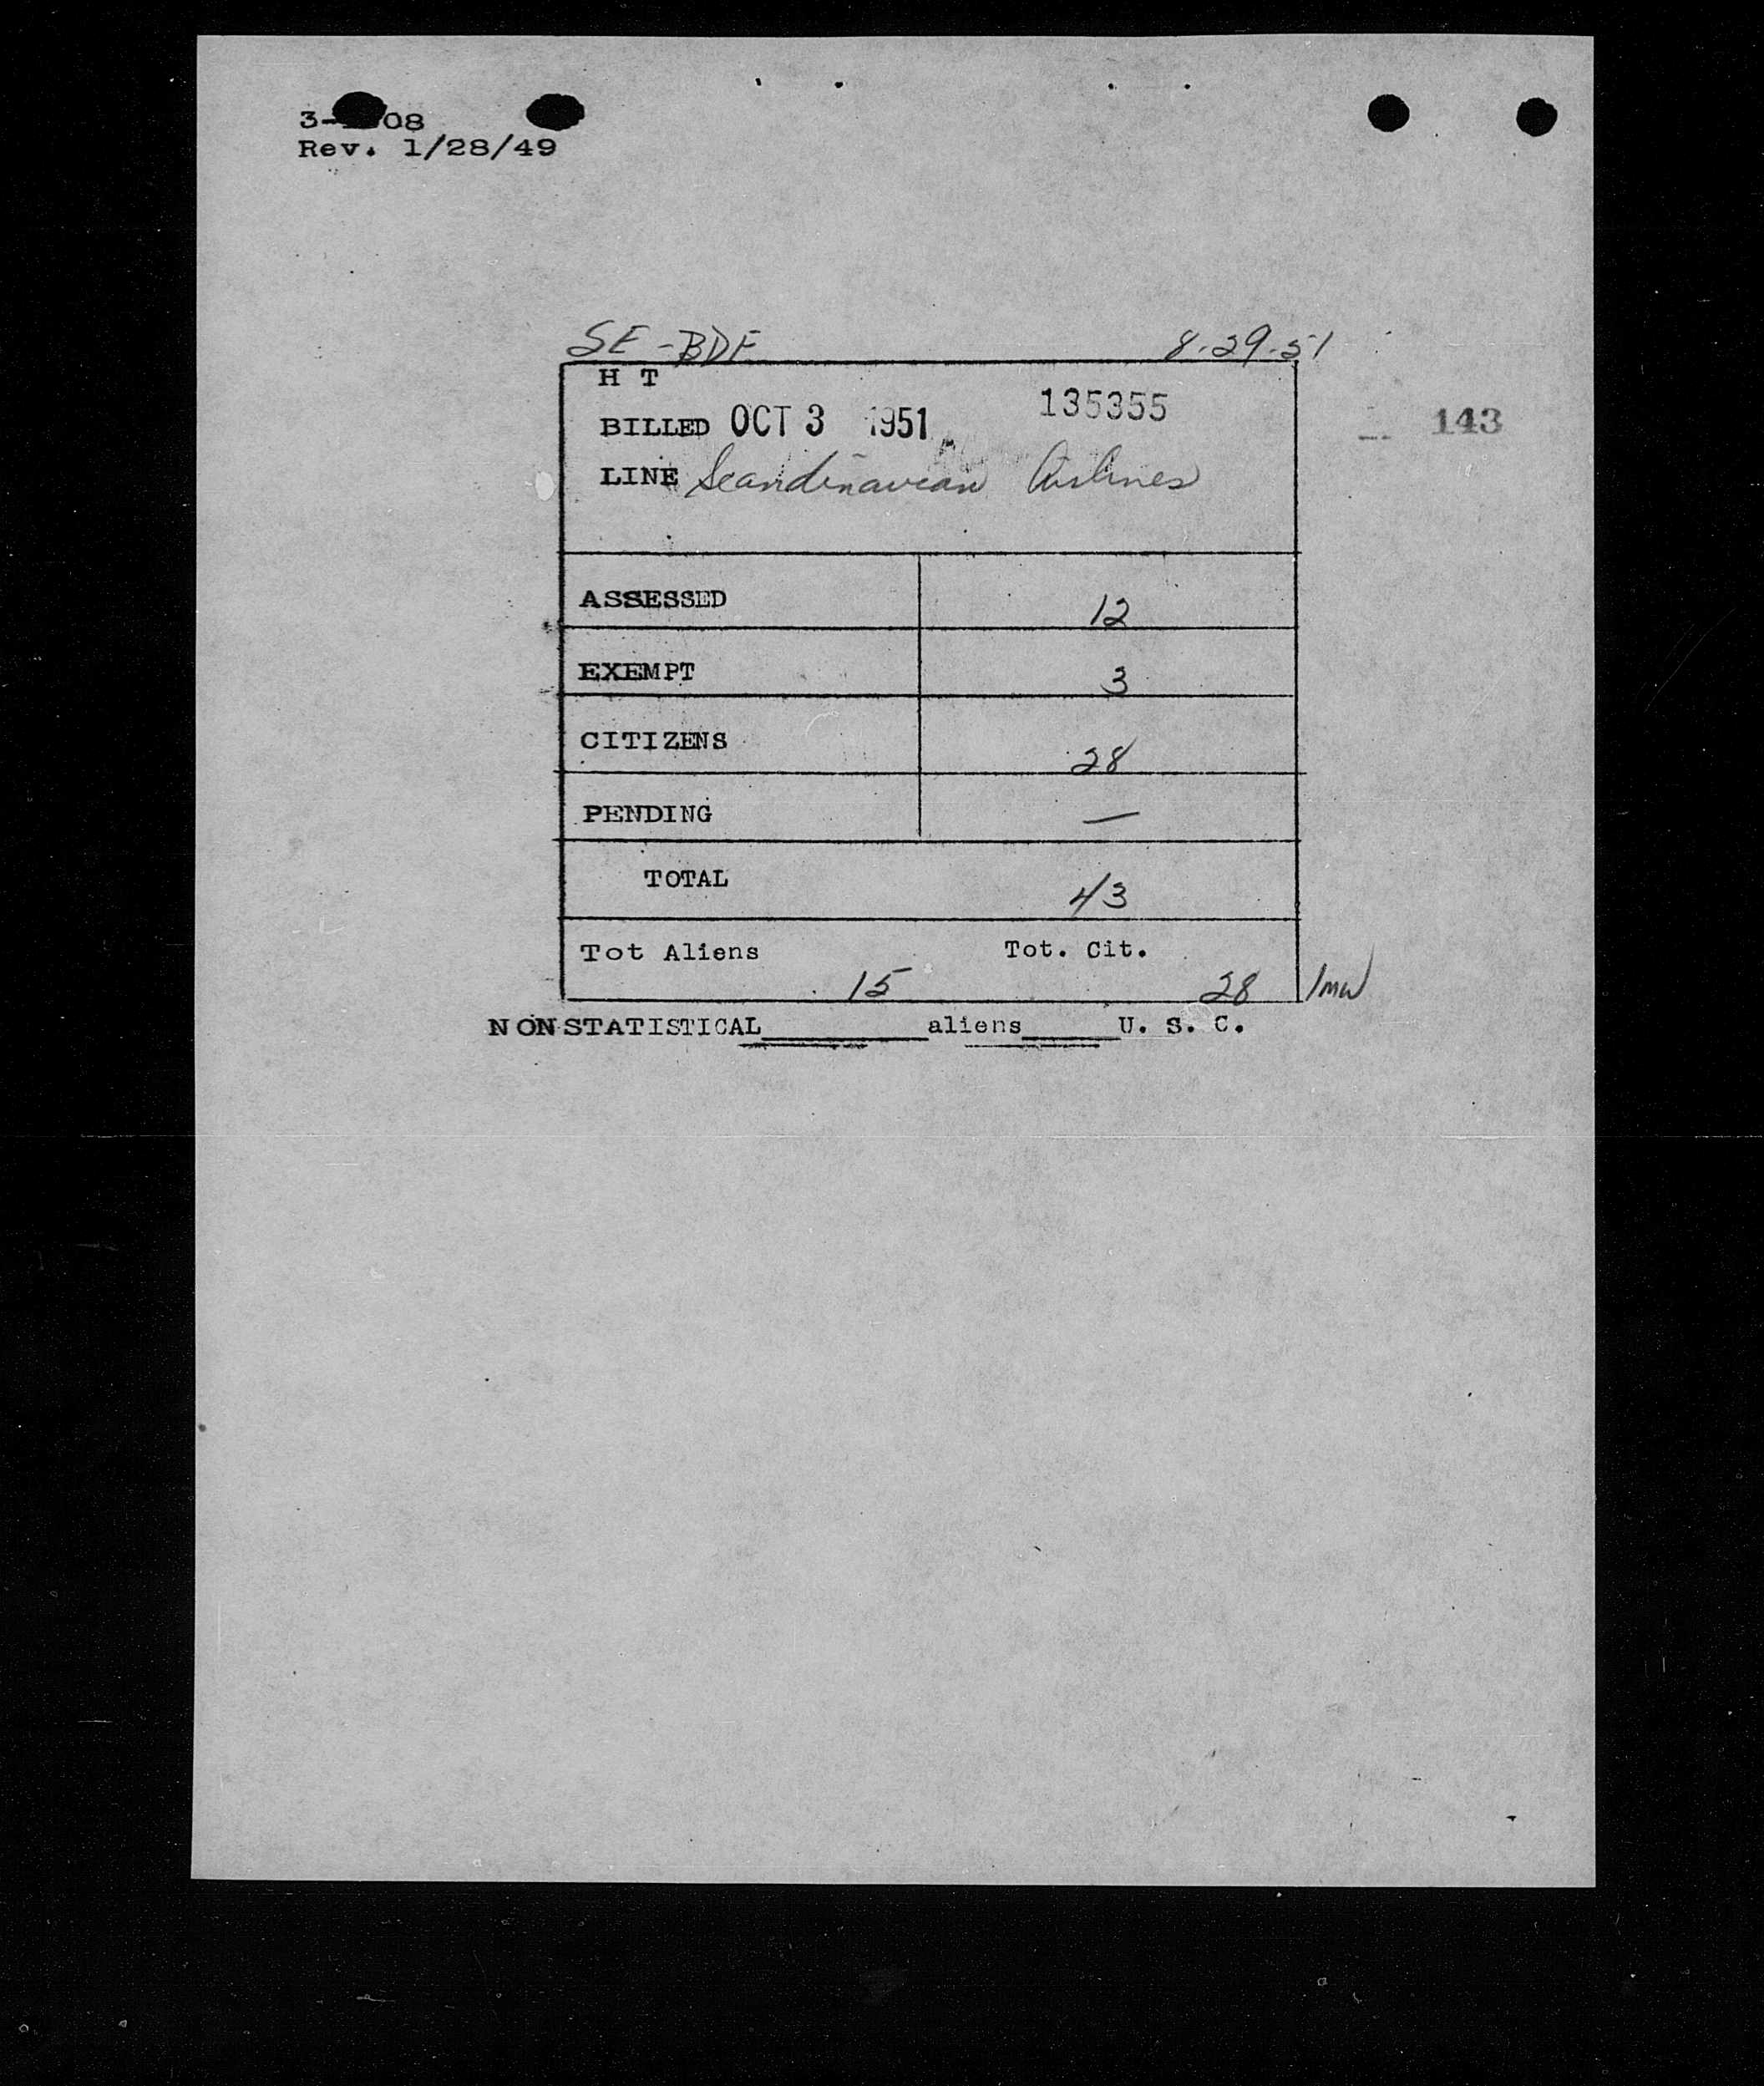 3- 08
Rev. 1/28/49
SE-BDF 8-29-51
H T
BILLED OCT 3 1951 135355
143
LINE Scandinavian Airlines
ASSESSED 12
EXEMPT 3
CITIZENS 28
PENDING —
TOTAL 43
Tot Aliens Tot. Cit.
15 28
NON STATISTICAL________aliens_____U. S. C.